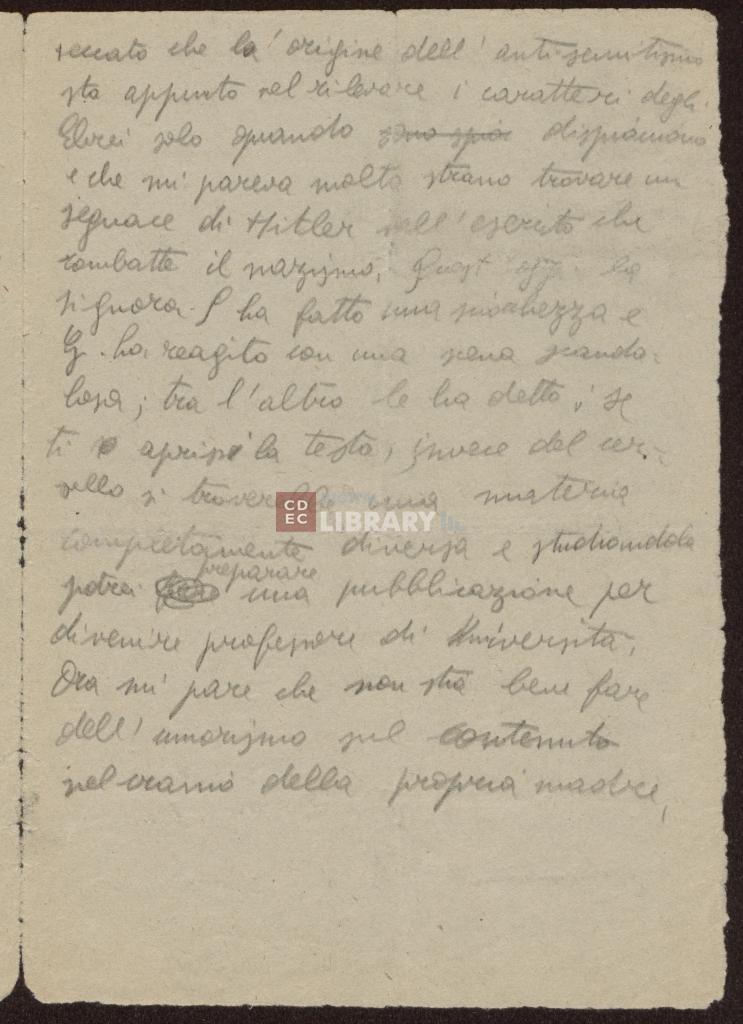 seccato che la' origine dell' antisemitismo
sta appunto nel rilevare i caratteri degli
Ebrei solo quando dispiacciono
e che mi pareva molto strano trovare un
seguace di Hitler nell'esercito che
combatte il nazismo. Quest' oggi la
signora S ha fatto una sciocchezza e
G. ha reagito con una scena scanda-
losa; tra l'altro le ha detto: se
ti aprissi la testa, invece del cer-
vello si troverebbe una materia
completamente diversa e studiandola
potrei preparare una pubblicazione per
divenire professore di Università.
Ora mi pare che non stia bene fare
dell'umorismo sul contenuto
nel cranio della propria madre,
CDEC
LIBRARY